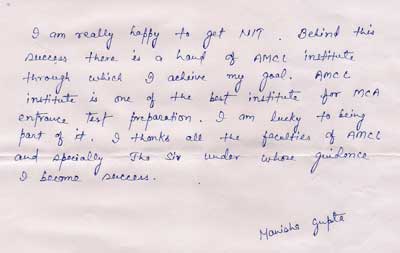 I am really happy to get NIT. Behind this
success there is a hand of AMCL institute
through which I acheive my goal. AMCL
institute is one of the best institute for MCA
entrance test preparation. I am lucky to being
part of it. I thanks all the faculties of AMCL
and specially The Sir under whose guidence
I become success.
Manisha Gupta